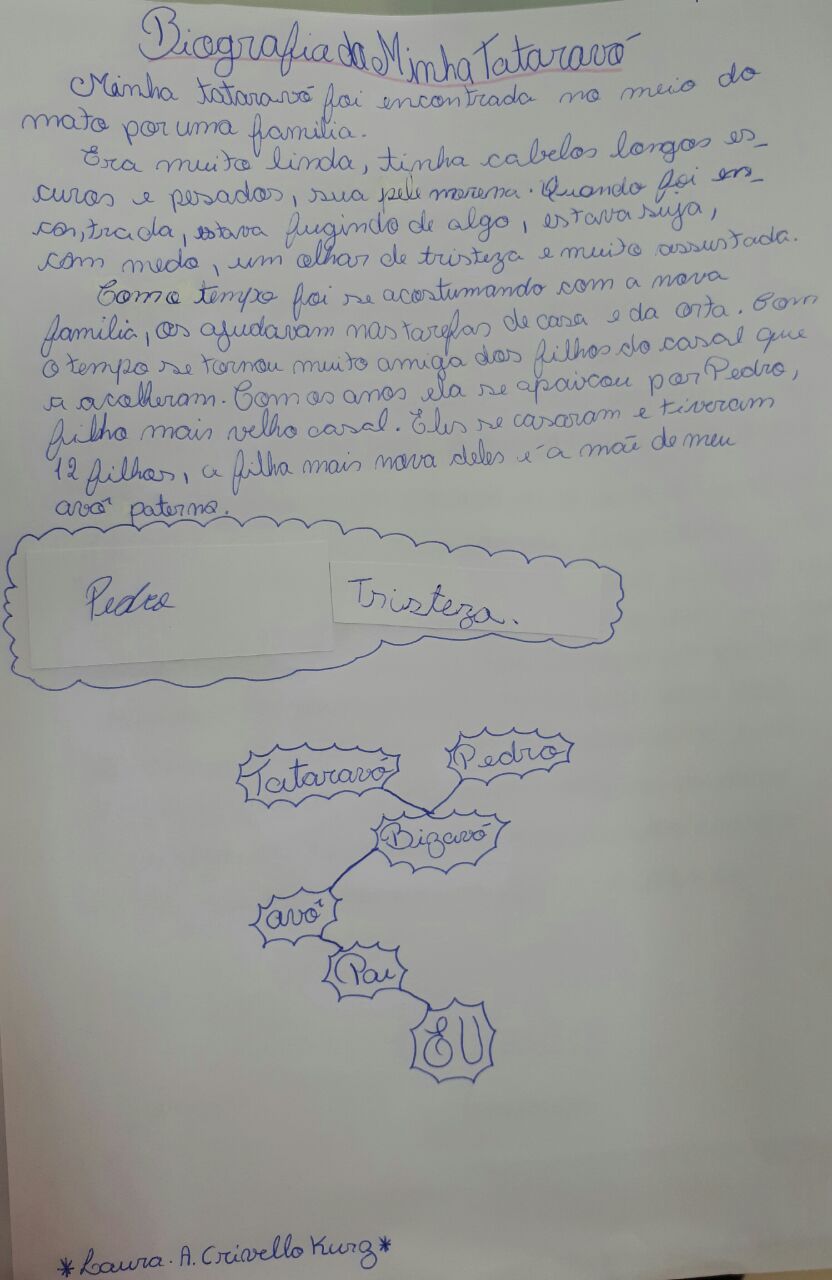 Biografia da Minha Tataravó
Minha tataravó foi encontrada no meio do
mato por uma familia.
Era muito linda, tinha cabelos longos es_
curos e pesados, sua pele morena. Quando foi en_
contrada, estava fugindo de algo, estava suja,
com medo, um olhar de tristeza e muito assustada.
Como tempo foi se acostumando com a nova
familia, os ajudavam nas tarefas de casa e da orta. Com
o tempo se tornou muito amiga dos filhos do casal que
a acolheram. Com os anos ela se apaixou por Pedro,
filho mais velho casal. Eles se casaram e tiveram
12 filhos, a filha mais nova deles é a mãe de meu
avô paterno.
Pedro Tristeza.
Tataravó Pedro
Bizavó
avô
Pai
EU
*Laura. A. Crivello Kurz*